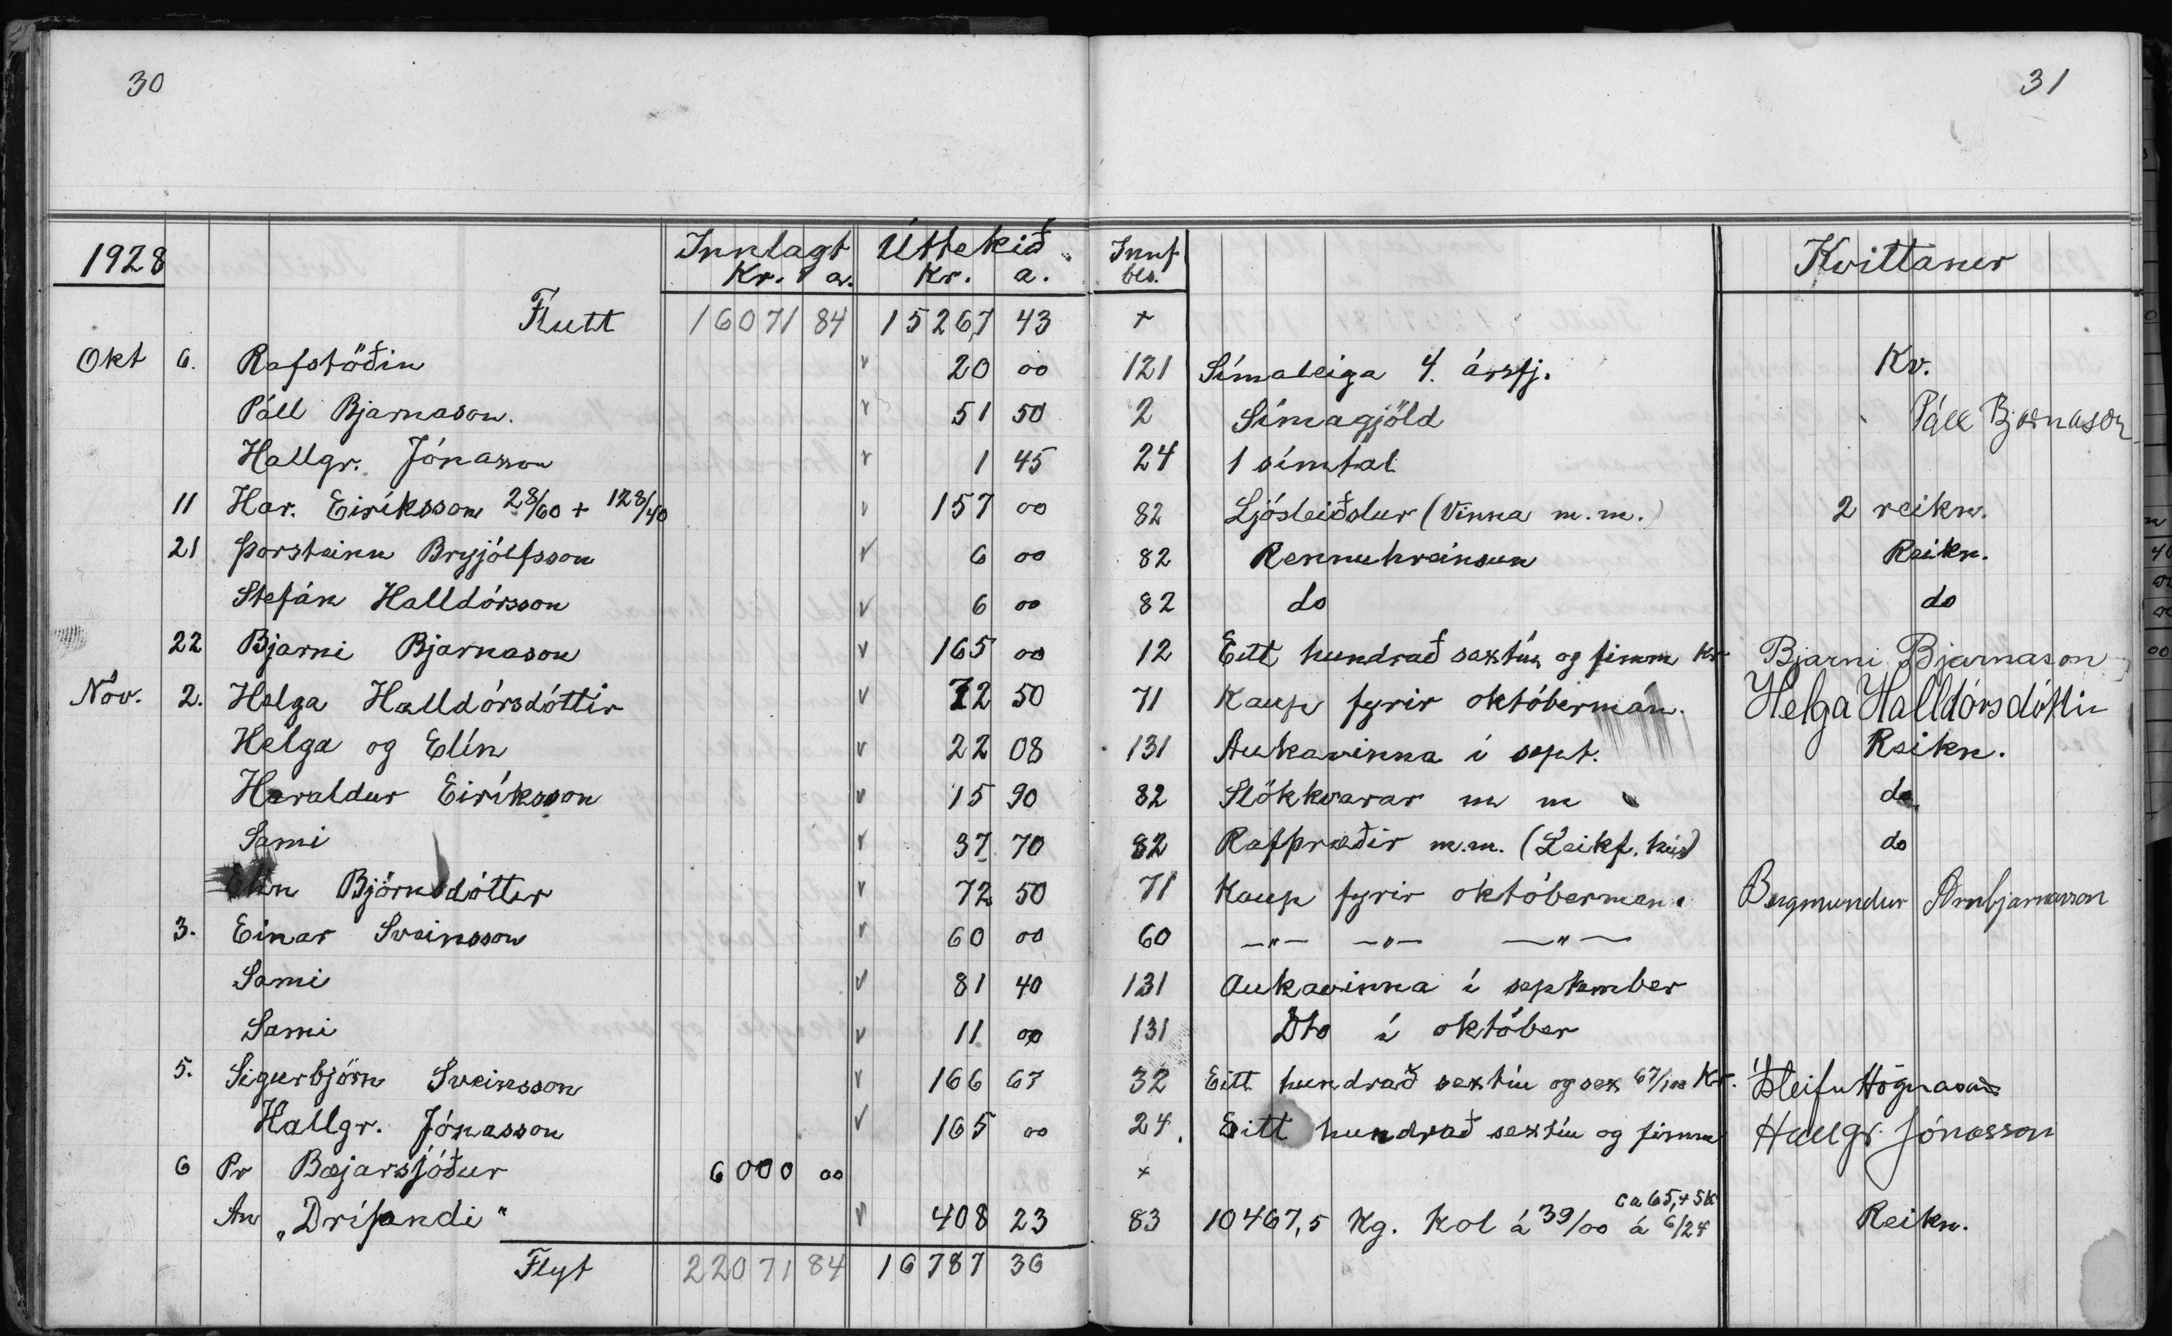 30
31
1928 Innlagt Úttekið. Innf Kvittaner
Kr. a. Kr. a. bls.
Flutt 16071 84 15267 43 +
Okt 6. Rafstöðin v 20 00 121 Símaleiga 4. ársfj. Kv.
Páll Bjarnason. v 51 50 2 Símagjöld Páll Bjarnason
Hallgr. Jónasson v 1 45 24 1 símtal
11 Har. Eiríksson 28/60 + 128/40 v 157 00 82 Ljósleiðslur (Vinna m.m.) 2 reikn.
21 Þorsteinn Brynjólfsson v 6 00 82 Rennuhreinsun Reikn.
Stefán Halldórsson v 6 00 82 do do
22 Bjarni Bjarnason v 165 00 12 Eitt hundrað sextíu og fimm kr Bjarni Bjarnason
Nóv. 2. Helga Halldórsdóttir v 72 50 71 Kaup fyrir októberman. Helga Halldórsdóttir
Helga og Elín v 22 08 131 Aukavinna í sept. Reikn.
Haraldur Eiríksson v 15 90 82 Slökkvarar m m do
Sami v 37 70 82 Rafþræðir m.m. (Leikf. hús) do
Elín Björnsdóttir v 72 50 71 Kaup fyrir októberman. Bergmundur Arnbjarnarson
3. Einar Sveinsson v 60 00 60 —"— —"— —"—
Sami v 81 40 131 Aukavinna í september
Sami v 11 00 131 Dto í október
5. Sigurbjörn Sveinsson v 166 67 32 Eitt hundrað sextíu og sex 67/100 Kr. Ísleifur Högnason
Hallgr. Jónasson v 165 00 24. Eitt hundrað sextíu og fimm Hallgr. Jónasson
6 Pr Bæjarsjóður 6000 00 +
An „Drífandi" v 408 23 83 10467,5 Kg. Kol á 39/00 á 6/24 Reikn.
Flyt 22071 84 16787 36